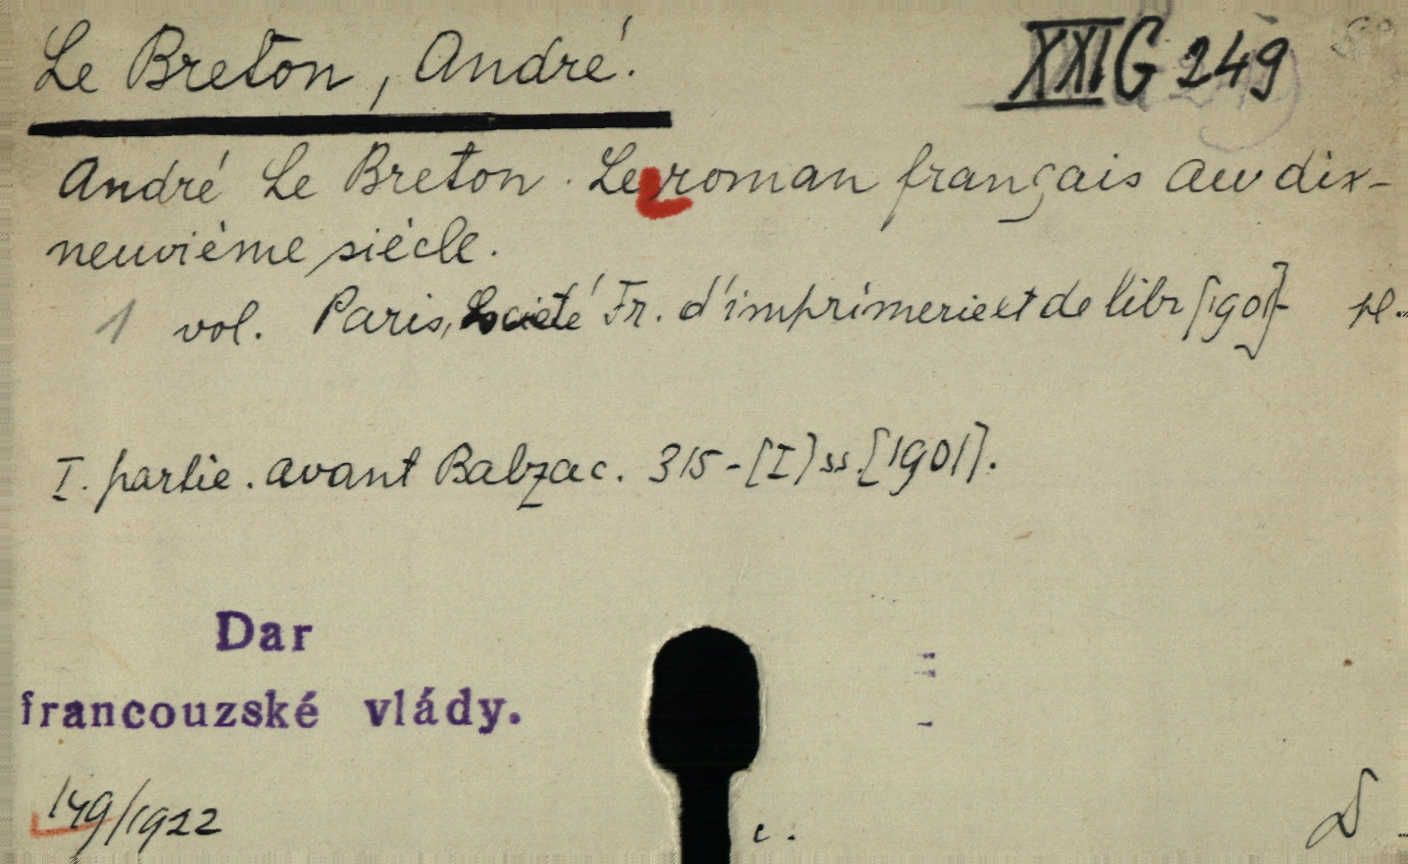 Le Breton, André.
XXI G 249
André Le Breton. Le roman français au dix-
neuvième siècle.
1 vol. Paris, Société Fr. d'imprimerie et de libr [1901]- pl.
I. partie. avant Balzac. 315-[I] ss. [1901].
Dar
francouzské vlády.
149/1922
c.